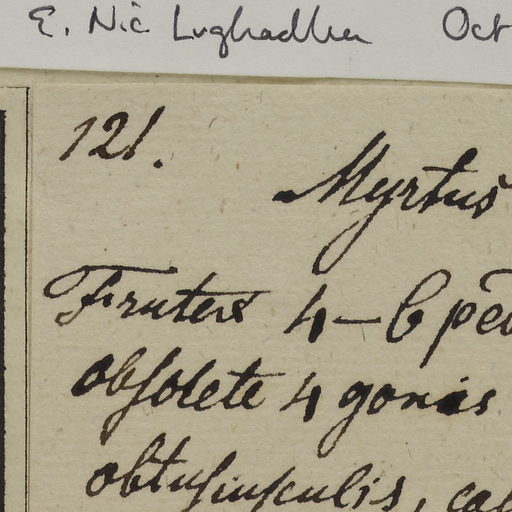 E. Nic Lughadha Oct
121.
Myrtus
Frutex 4-6 ped
obsolete 4 gonis
obtusiusculis, cal